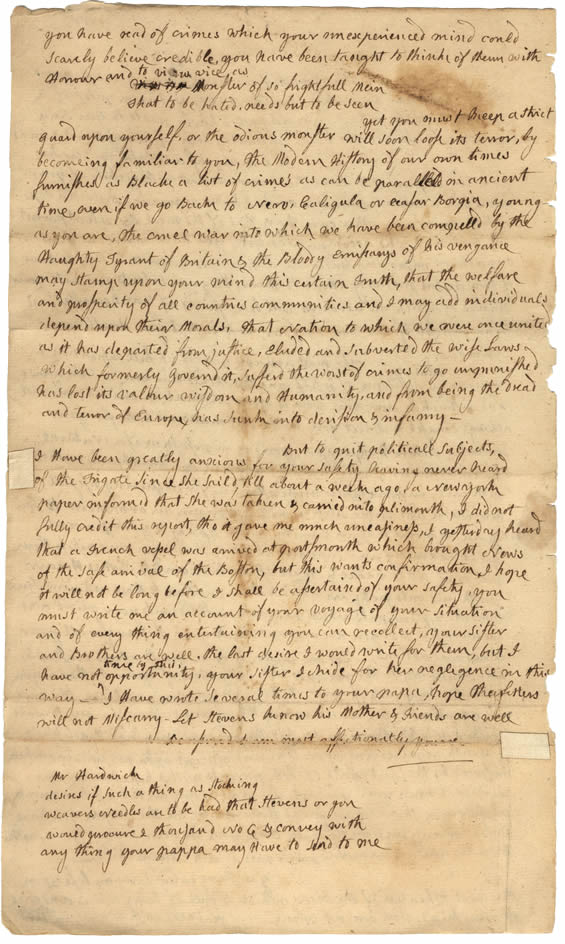 you have read of crimes which your unexperienced mind could
scarcly believe credible, you have been taught to think of them with
Horour and to view vice, as
Monster of so frightfull Mein
That to be hated, needs but to be seen
yet you must keep a strict
guard upon yourself, or the odious monster will soon loose its terror, by
becomeing familiar to you, The Modern History of our own times
furnishes as Black a list of crimes as can be paralleld in ancient
time, even if we go Back to Nero, Caligula or Ceasar Borgia, young
as you are, the cruel war into which we have been compelled by the
Haughty Tyrant of Britain & the Bloody Emissarys of his vengance
may stamp upon your mind this certain truth, that the welfare
and prosperity of all countries communities and I may add individuals
depend upon their Morals. That Nation to which we were once united
as it has departed from justice, Eluded and Subverted the wise Laws
which formerly governd it, sufferd the worst of crimes to go unpunished
has lost its valour wisdom and Humanity, and from being the dread
and terror of Europe, has sunk into derision & infamy—
But to quit politicall Subjects,
I Have been greatly anxious for your safety having never heard
of the Frigate since she saild till about a week ago, a New york
paper informd that she was taken & carried into plimouth, I did not
fully credit this report, tho it gave me much uneasiness, I yesterday heard
that a French vessel was arrived at portsmouth which brought News
of the safe arrival of the Boston, but this wants confirmation, I hope
it will not be long before I shall be assertained of your safety, you
must write me an account of your voyage of your situation
and of every thing entertaining you can recollect, your Sister
and Brothers are well. the last desire I would write for them, but I
have not time by this opportunity, your Sister I chide for her negligence in this
way— I Have wrote Several times to your papa, hope the Letters
will not Miscarry— Let Stevens know his Mother & Friends are well
I am most affectionately yours
Mr Hardwick
desires if such a thing as Stocking
weavers needles are to be had that Stevens or you
would procure 2 thousand No 6 & convey with
any thing your pappa may Have to send to me